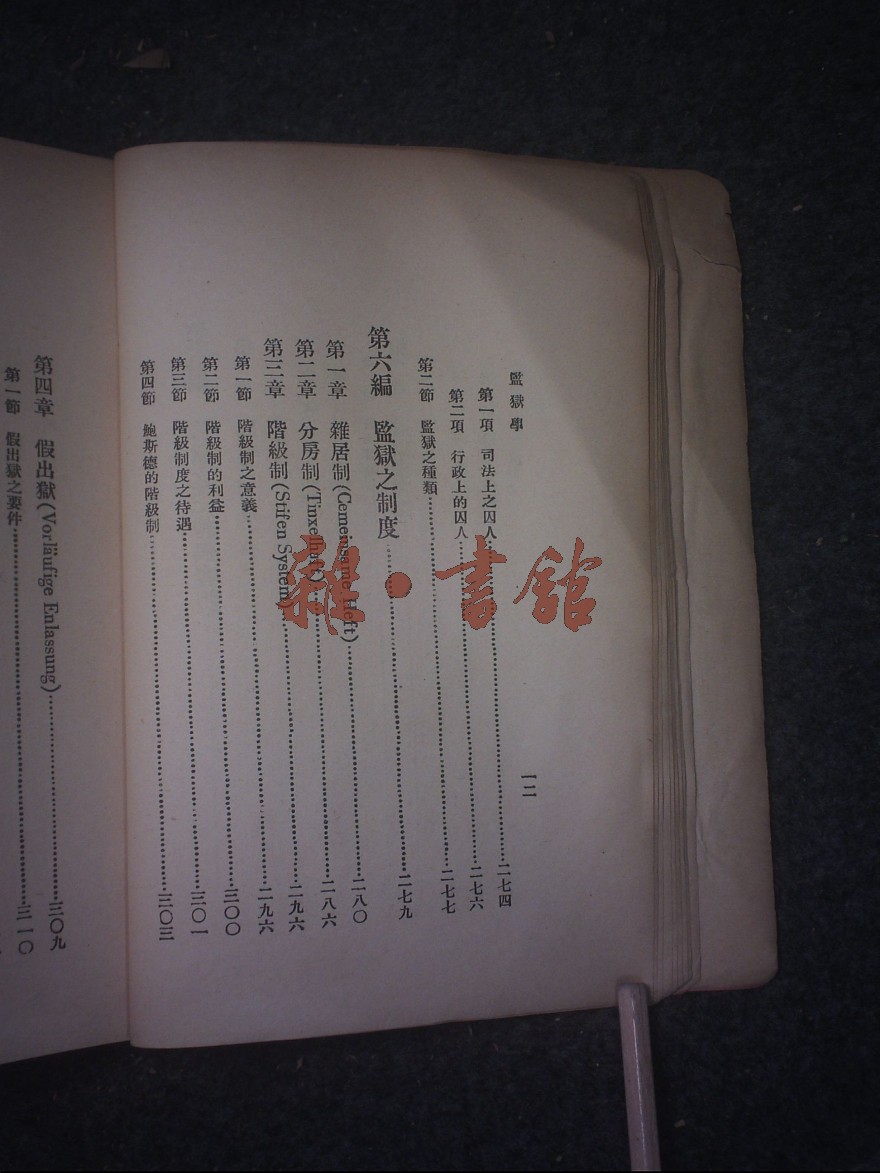 監獄學 一二
第一項 司法上之囚人……二七四
第二項 行政上的囚人……二七六
第二節 監獄之種類……二七七
第六編 監獄之制度……二七九
第一章 雜居制(Cemeinsame Heft)……二八〇
第二章 分房制(Tinxelhaft)……二八六
第三章 階級制(Stifen System)……二九六
第一節 階級制之意義……二九六
第二節 階級制的利益……三〇〇
第三節 階級制度之待遇……三〇一
第四節 鮑斯德的階級制……三〇三
第四章 假出獄(Vorläufige Enlassung)……三〇九
第一節 假出獄之要件……三一〇
雜·書館